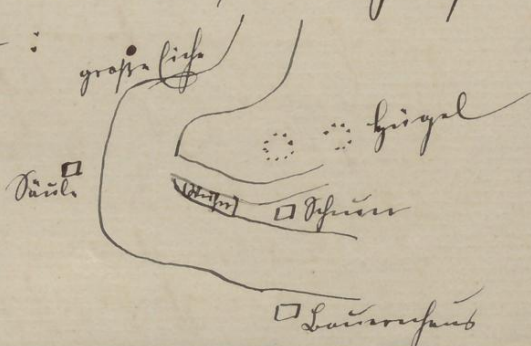 große Eiche
Hügel
Säule
Weiher
Scheune
Bauernhaus